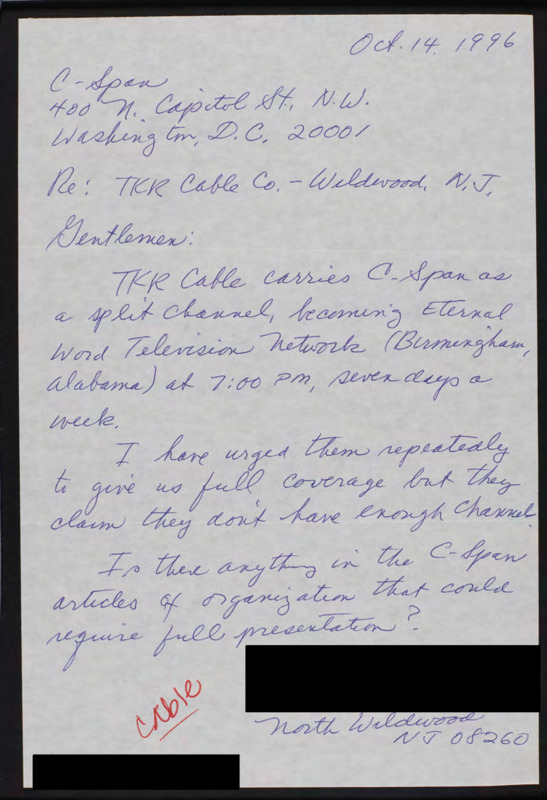 Oct. 14. 1996
C-Span
400 N. Capitol St., N.W.
Washington, D.C. 20001
Re: TKR Cable Co. - Wildwood, N.J.
Gentlemen:
TKR Cable carries C-Span as
a split channel, becoming Eternal
Word Television Network (Birmingham,
Alabama) at 7:00 PM, seven days a
week.
I have urged them repeatedly
to give us full coverage but they
claim they don't have enough channel
Is there anything in the C-Span
articles of organization that could
require full presentation?
cable
North Wildwood
NJ 08260